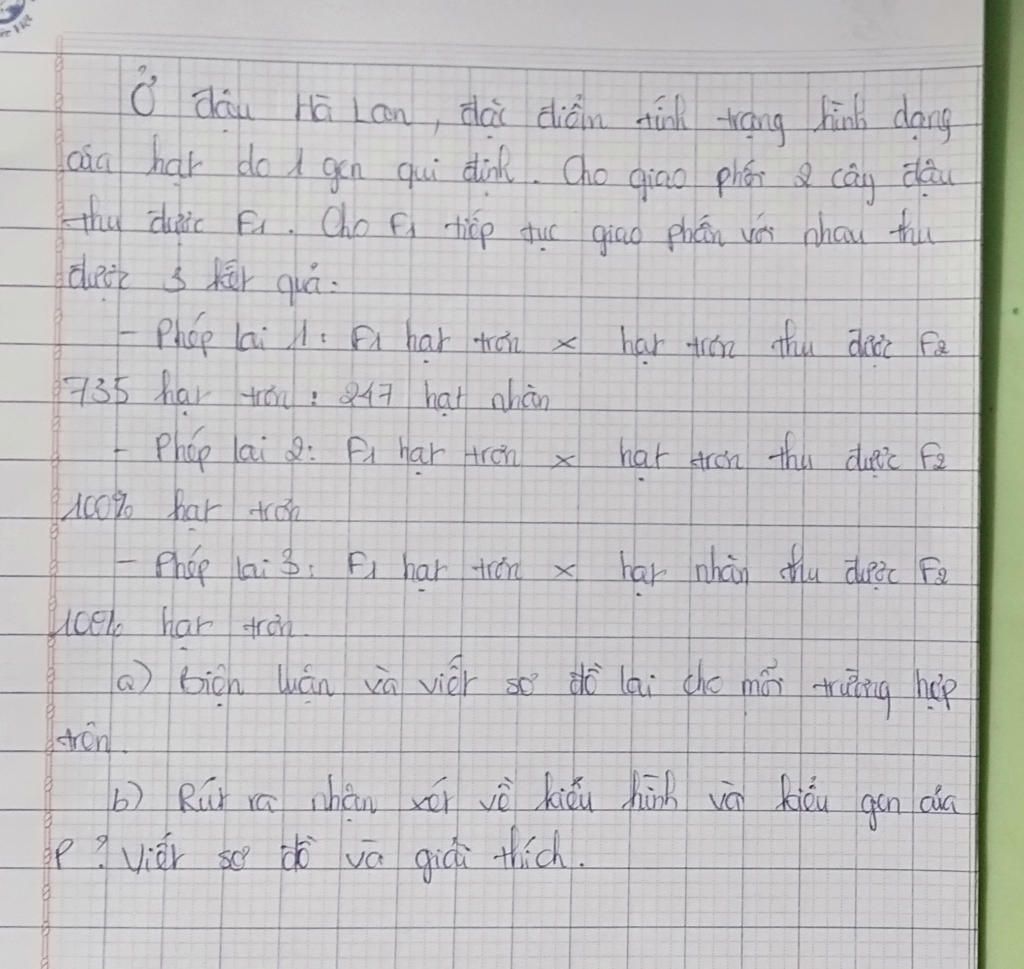 Ở đậu Hà Lan, đặc điểm tính trạng hình dạng
của hạt do 1 gen qui định. Cho giao phối 2 cây đậu
thu được F1. Cho F1 tiếp tục giao phấn với nhau thu
được 3 kết quả:
- Phép lai 1: F1 hạt trơn x hạt trơn thu được F2
735 hạt trơn : 247 hạt nhăn
- Phép lai 2: F1 hạt trơn x hạt trơn thu được F2
100% hạt trơn
- Phép lai 3: F1 hạt trơn x hạt nhăn thu được F2
100% hạt trơn.
a) Biện luận và viết sơ đồ lai cho mỗi trường hợp
trên.
b) Rút ra nhận xét về kiểu hình và kiểu gen của
P? Viết sơ đồ và giải thích.